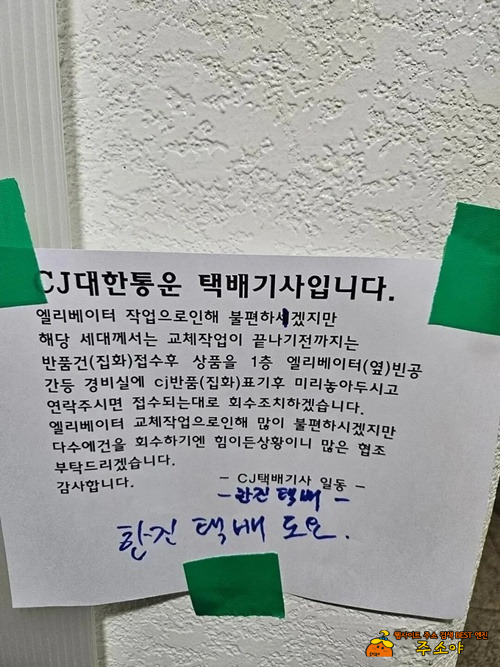 CJ대한통운 택배기사입니다.
엘리베이터 작업으로인해 불편하시겠지만
해당 세대께서는 교체작업이 끝나기전까지는
반품건(집화)접수후 상품을 1층 엘리베이터(옆)빈공
간등 경비실에 cj반품(집화)표기후 미리놓아두시고
연락주시면 접수되는대로 회수조치하겠습니다.
엘리베이터 교체작업으로인해 많이 불편하시겠지만
다수에건을 회수하기엔 힘이든상황이니 많은 협조
부탁드리겠습니다.
감사합니다.
- CJ택배기사 일동 -
- 한진 택배 -
한진 택배 도요.
웹사이트 주소 검색 BEST 엔진
주소야